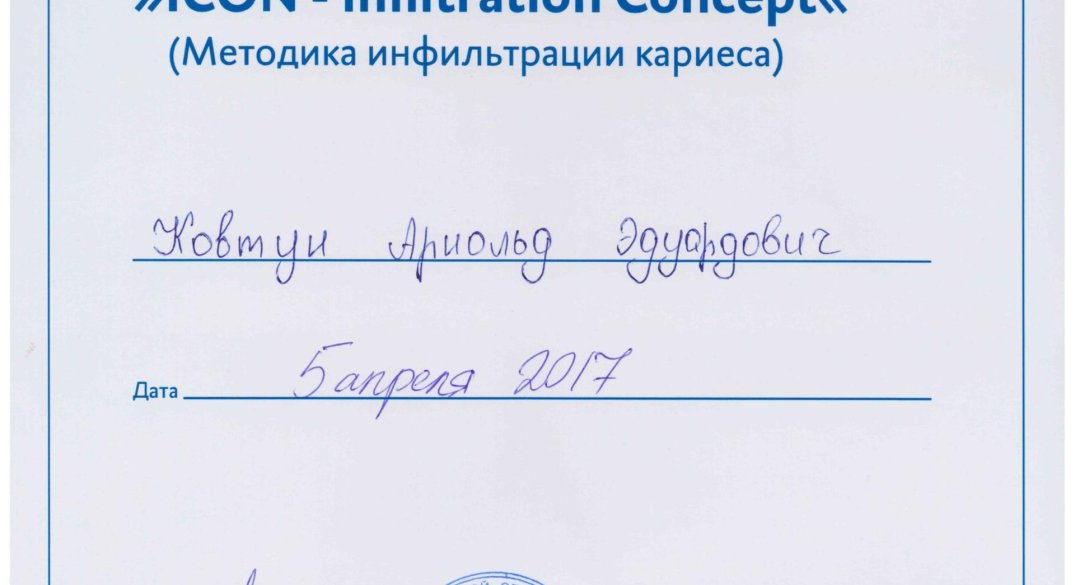 »ICON - Infiltration Concept«
(Методика инфильтрации кариеса)
Ковтун Арнольд Эдуардович
Дата 5 апреля 2017